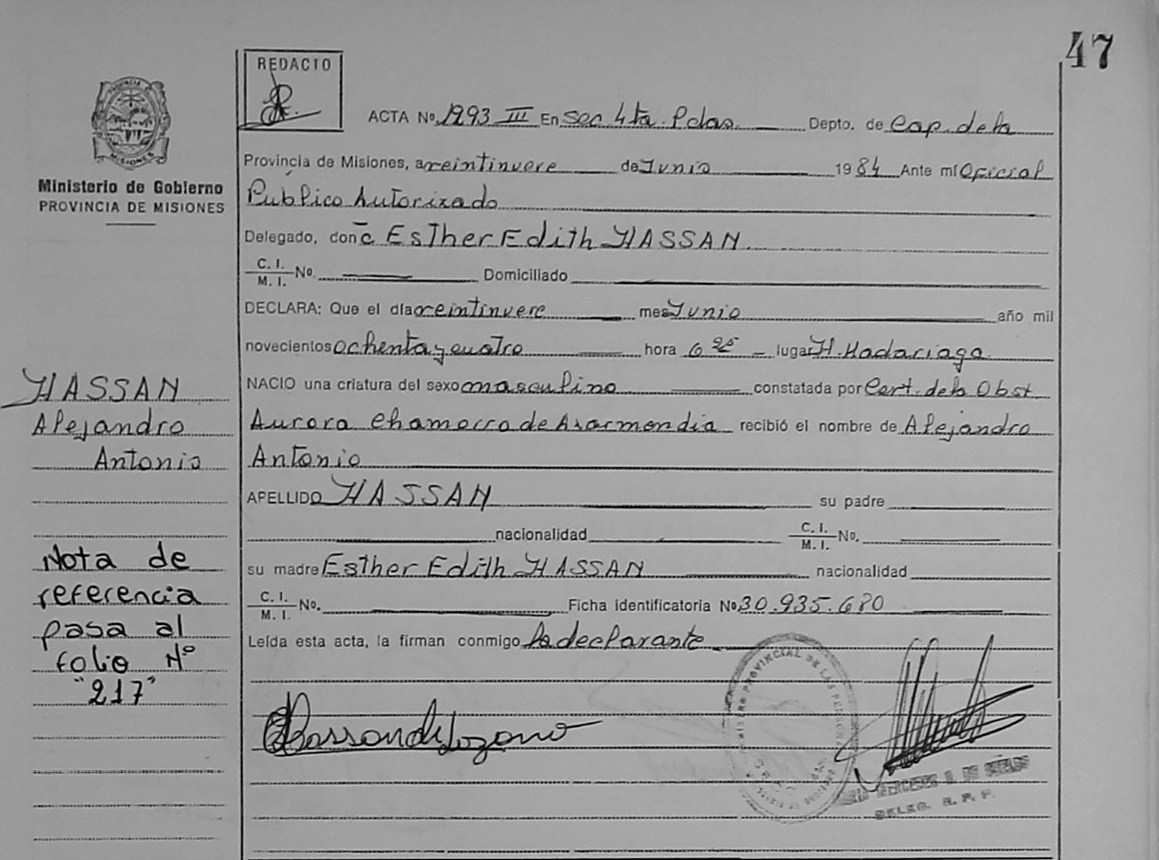 47
REDACTO
ACTA Nº 1293 III En Sec 4ta. Pdas. Depto. de Cap. de la
Provincia de Misiones, a veintinueve de Junio 1984 Ante mí Oficial
Público Autorizado
Delegado, don Esther Edith HASSAN
C. I. M. I. No. Domiciliado
DECLARA: Que el día veintinueve mes Junio año mil
novecientos ochenta y cuatro hora 6 25 lugar H. Madariaga
NACIO una criatura del sexo masculino constatada por Cert. de la Obst.
Aurora Chamorro de Azarmendia recibió el nombre de Alejandro
Antonio
APELLIDO HASSAN su padre
nacionalidad C. I. M. I. No.
su madre Esther Edith HASSAN nacionalidad
C. I. M. I. No. Ficha identificatoria Nº 30.935.680
Leída esta acta, la firman conmigo la declarante
Ministerio de Gobierno
PROVINCIA DE MISIONES
HASSAN
Alejandro
Antonio
Nota de
referencia
pasa al
folio Nº
"217"